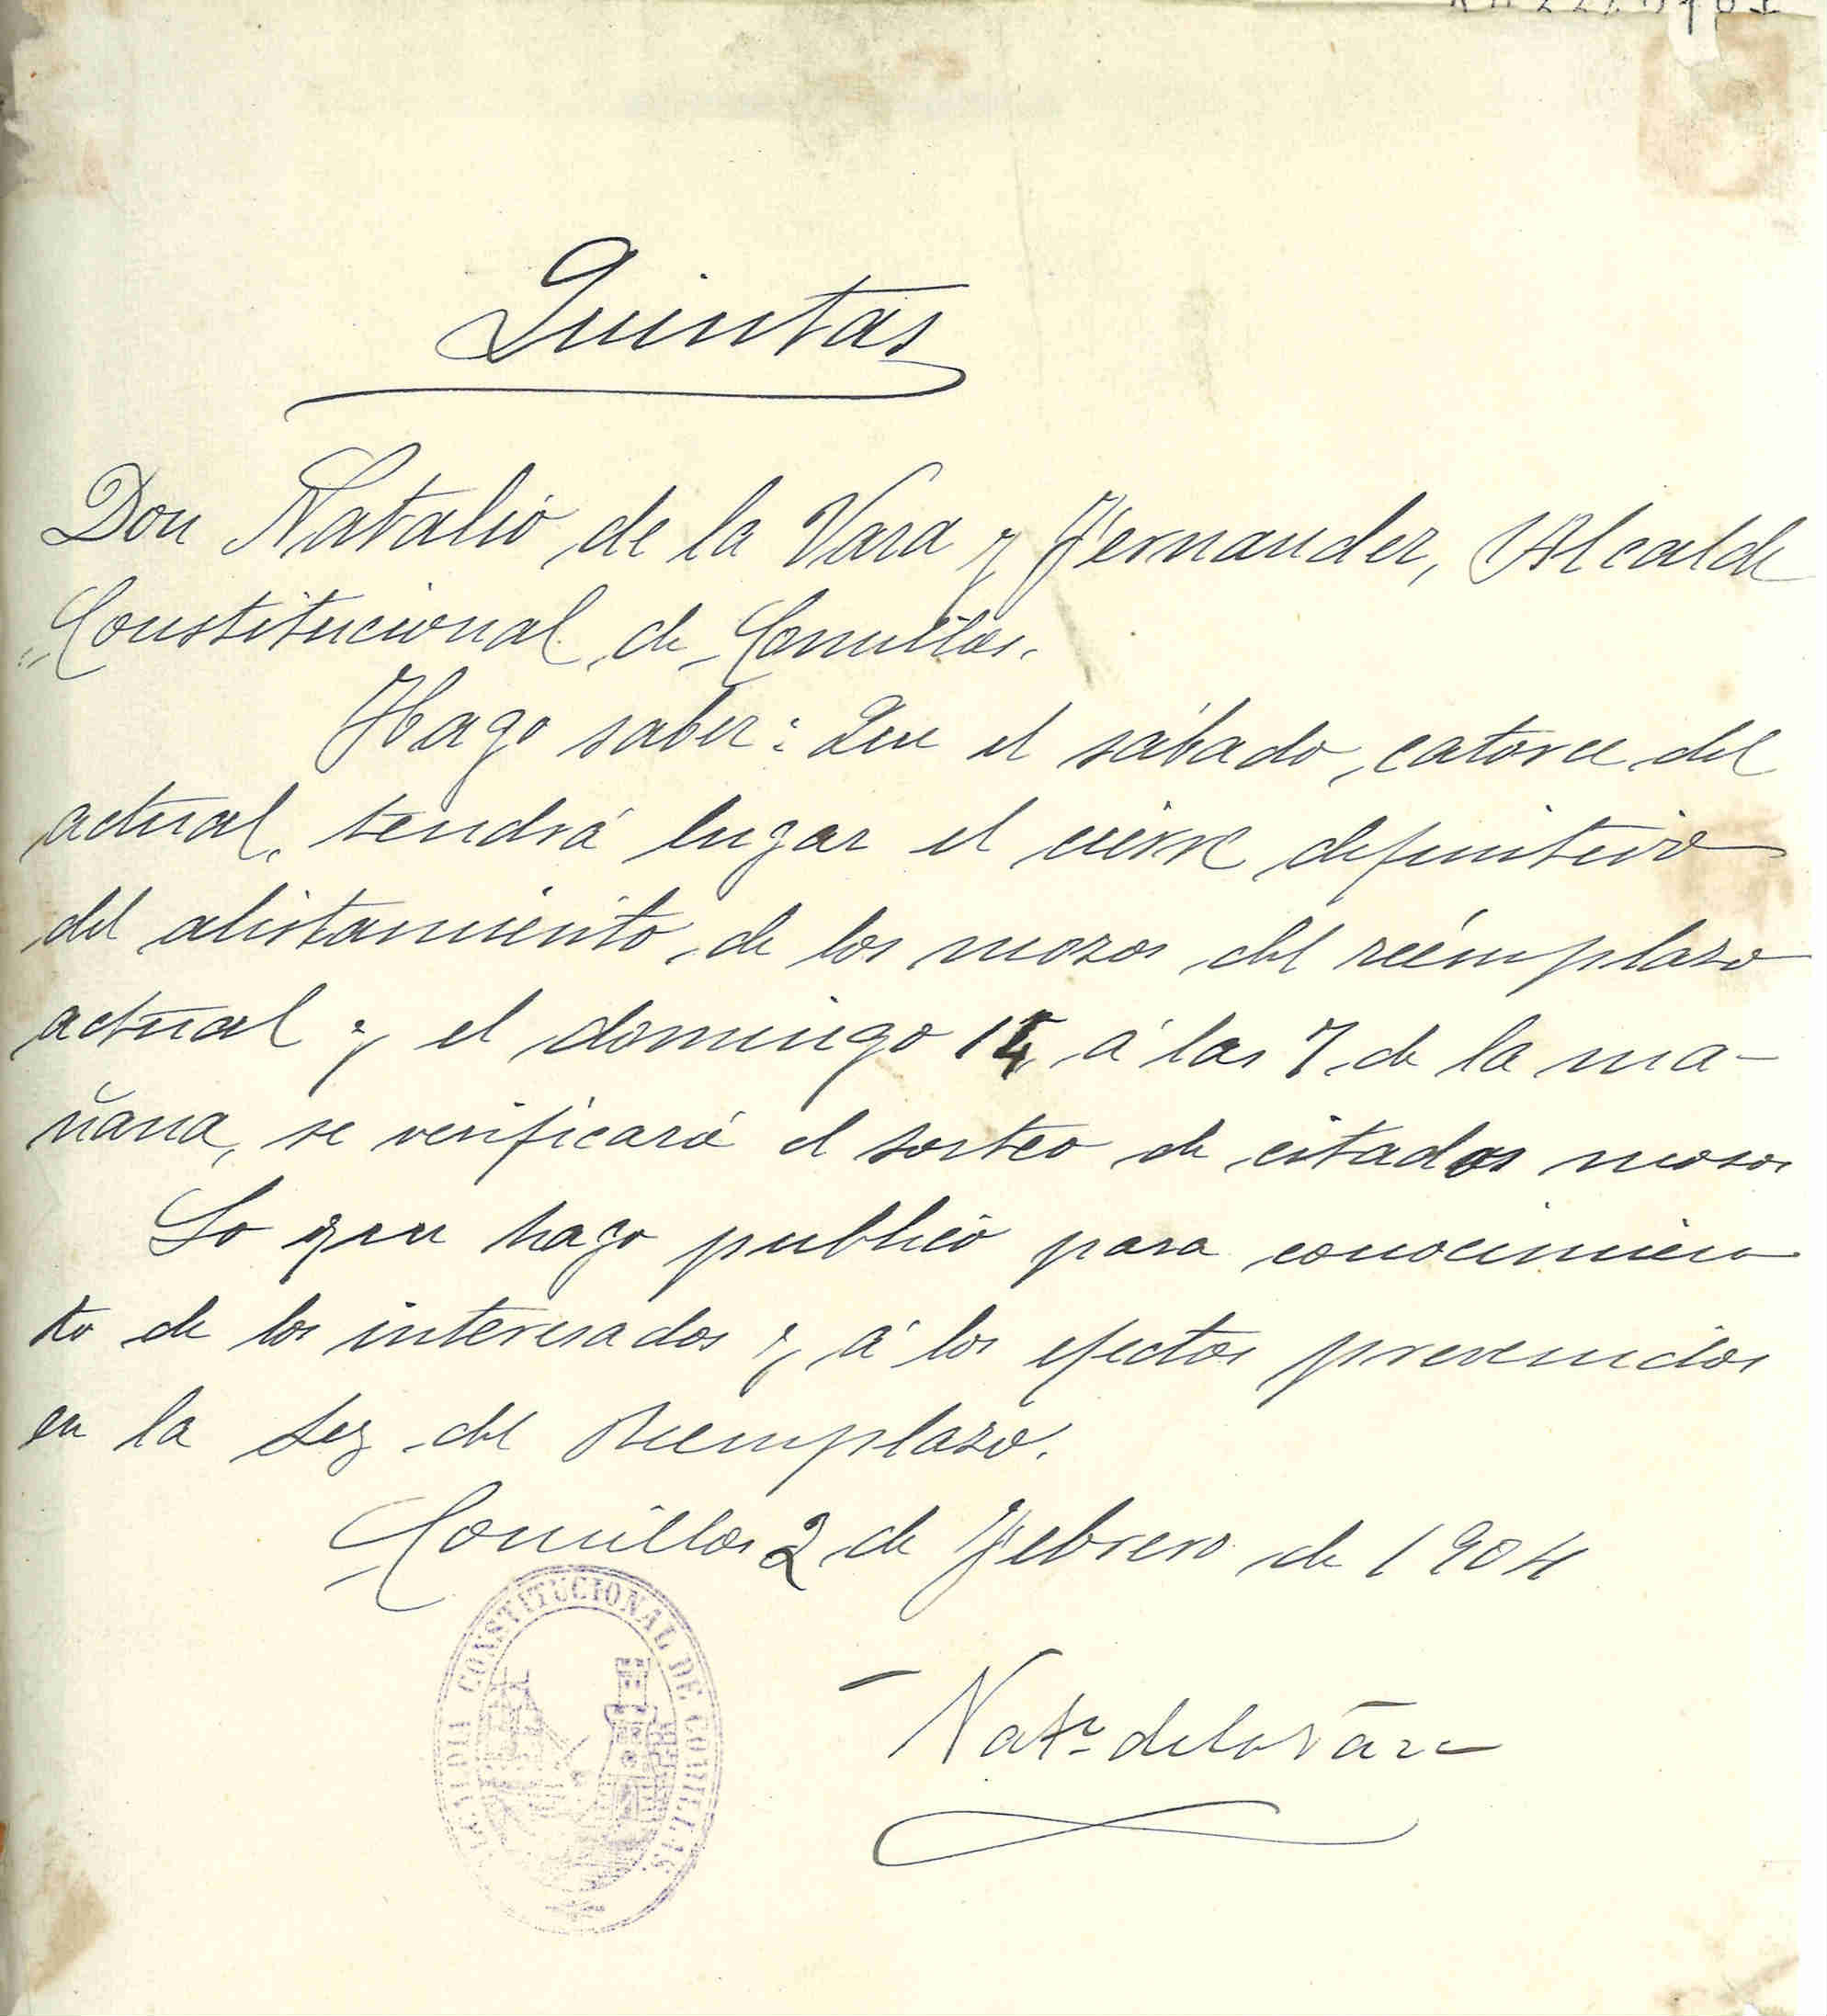 Quintas
Don Natalio de la Vara y Fernandez, Alcalde
Constitucional de Comillas.
Hago saber: Que el sábado, catorce del
actual, tendrá lugar el cierre definitivo
del alistamiento de los mozos del reémplazo
actual y el domingo 14, á las 7 de la ma-
ñana, se verificará el sorteo de citados mozos
Lo que hago publico para conocimien
to de los interesados y á los efectos prevenidos
en la Ley del Reemplazo.
Comillas 2 de Febrero de 1904
CONSTITUCIONAL DE COMILLAS
Nat.º de la Vara